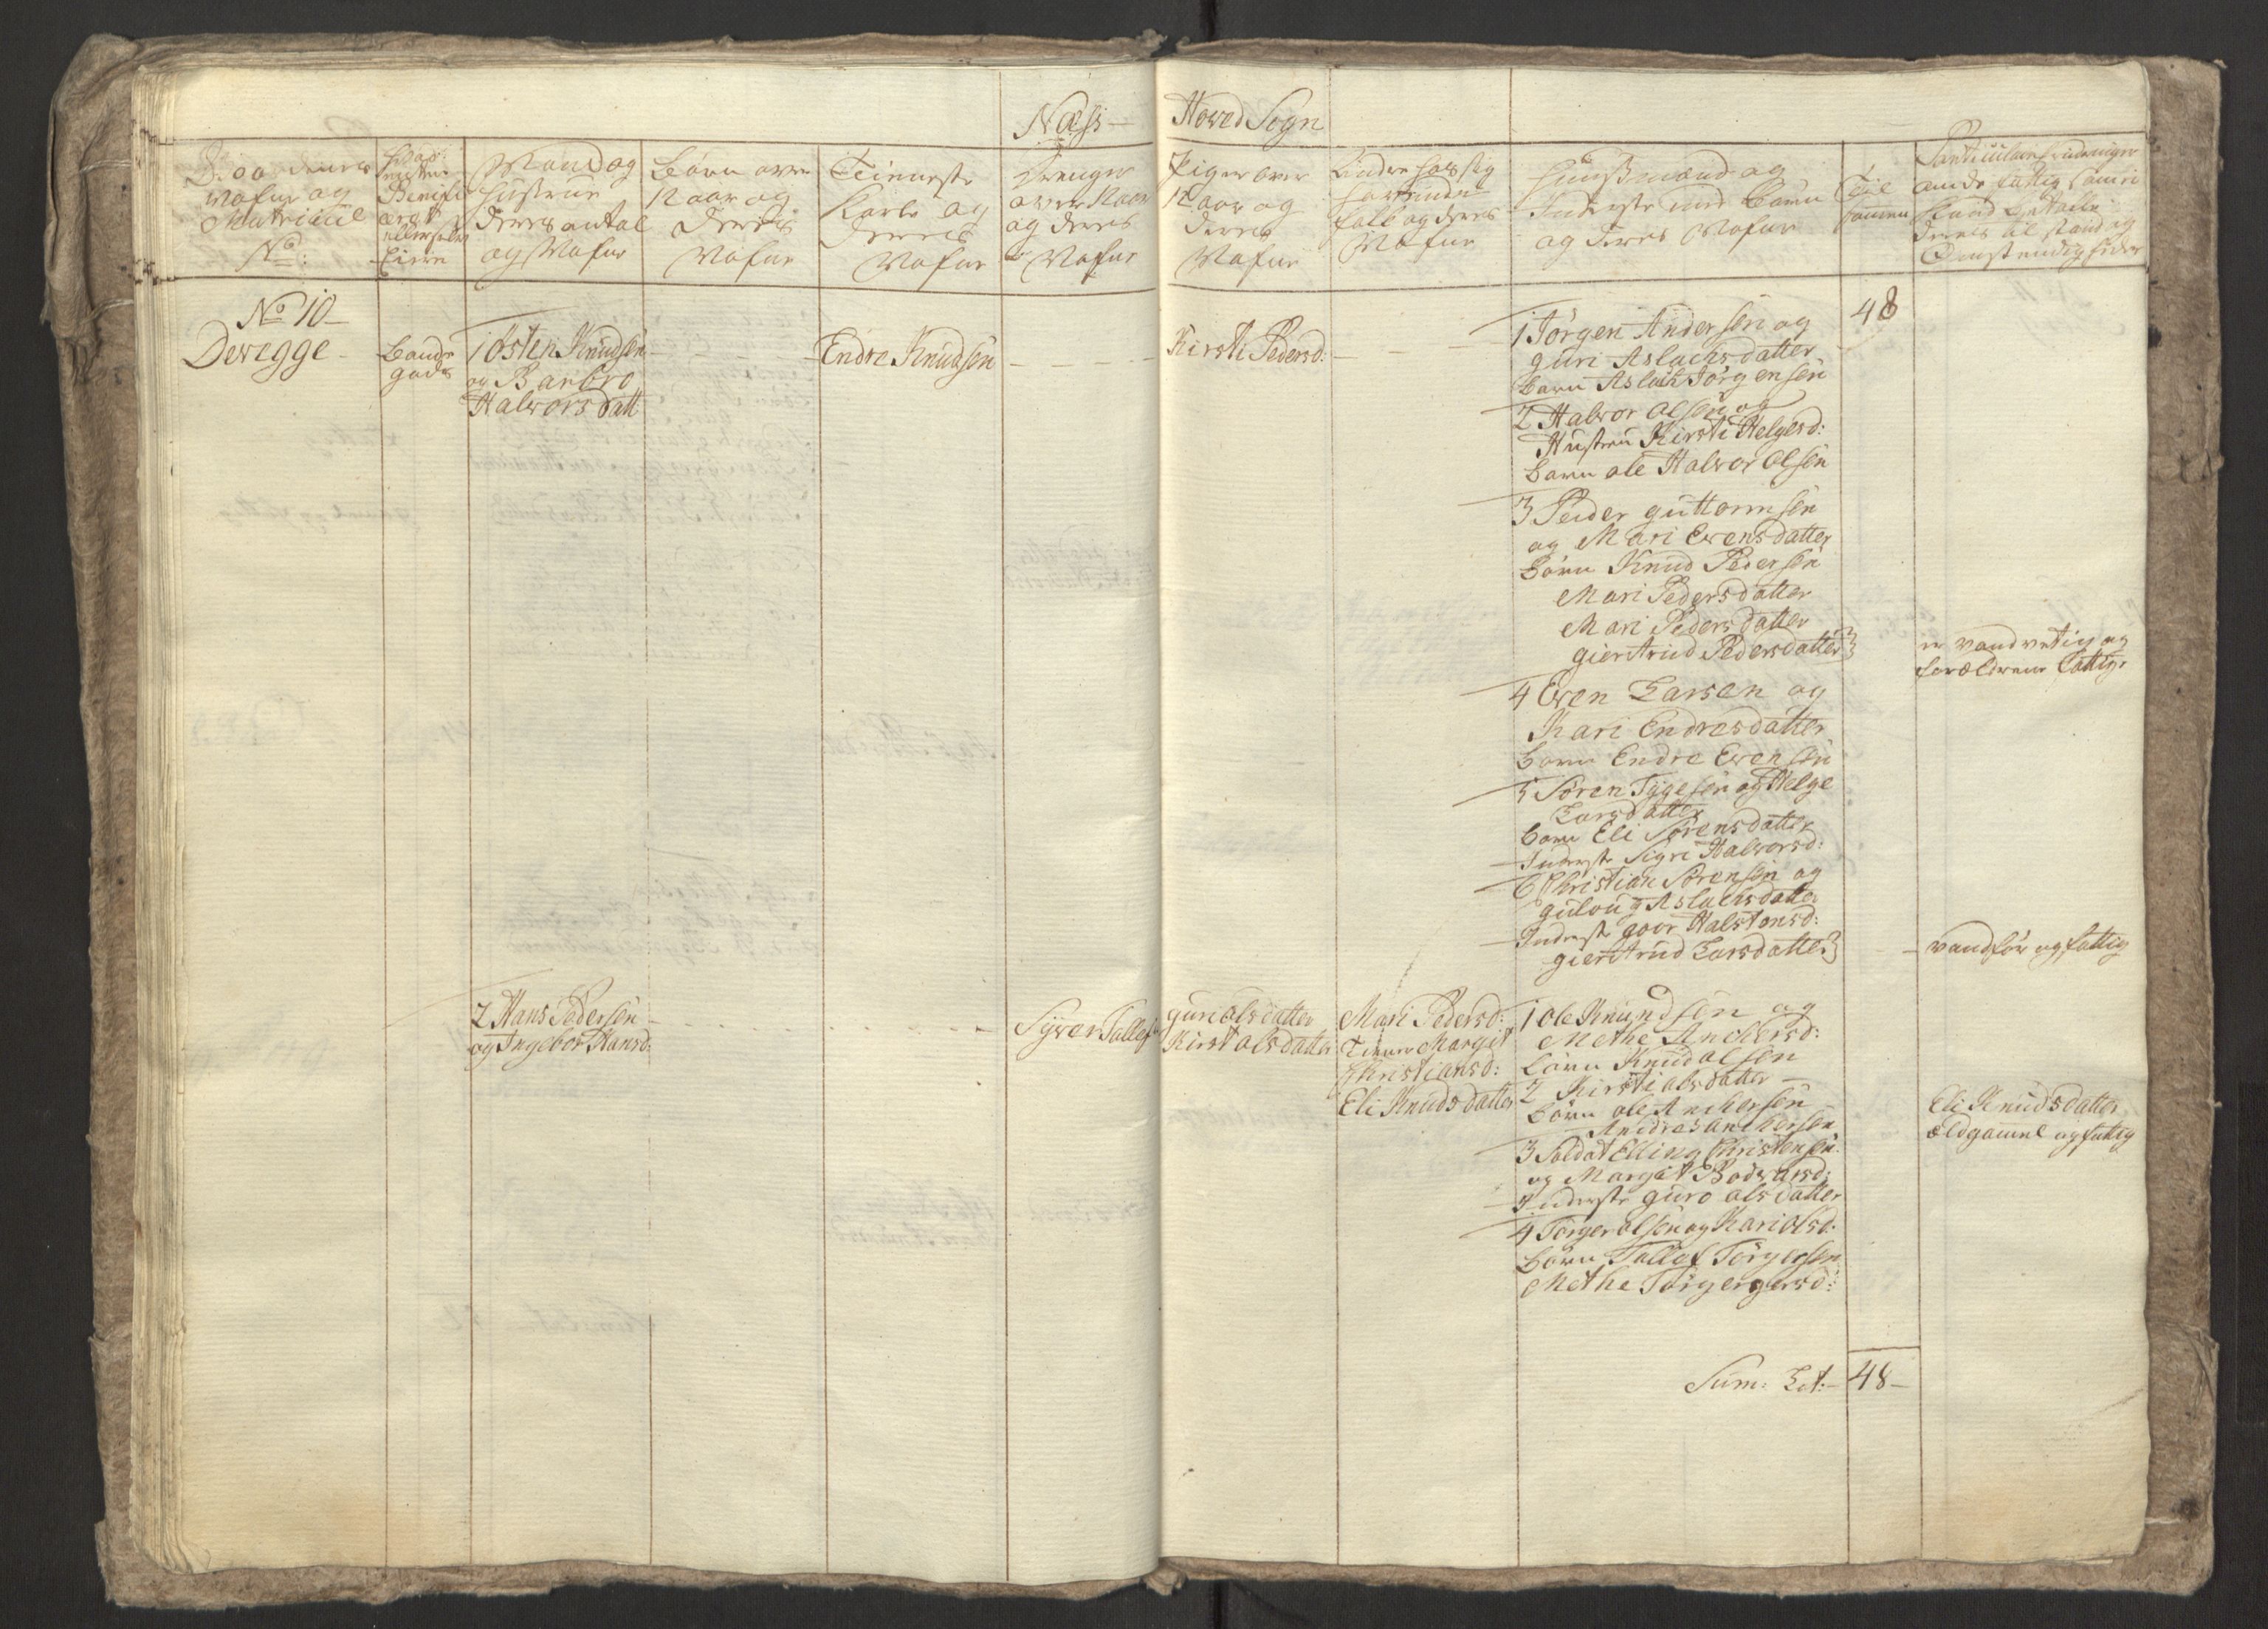 Næss – Hoved Sogn
Gaardenes
Nafne og
Matricul
No:
Mand og
Hustrue
deres antal
og Nafne
Børn over
12 aar og
deres
Nafne
Tieneste
Karle og
deres
Nafne
Drenge
over 12 aar
og deres
Nafne
Piger over
12 aar og
deres
Nafne
folk og deres
Nafne
Huusmænd og
Inderste med Børn
og deres Nafne
Tilsammen
No 10
Deregge
Bonde
gods
1 østen Knudsen
og Barbro
Halvorsdatt
Endre Knudsen
Kirsti Pedersd:
1 Jørgen Andersen og
guri Aslachsdatter
barn Aslach Jørgensen
2 Halvor olsen og
Hustru Kirsti Helgesd:
barn ole Halvorolsen
3 Peder guttormsen
og Mari Evensdatter
børn Knud Pedersen
Mari Pedersdatter
Mari Pedersdatter
giertrud Pedersdatter
4 Even Larsen og
Kari Endresdatter
barn Endre Evensen
5 Søren Tygesen og Helge
Larsdatter
barn Eli Sørensdatter
Inderste Sigri Halvorsd:
6 Christian Sørensen og
gulou g Aslachsdatter
Inderste goor Halstensd:
giertrud Larsdatter
48
er vandvetig og
forældrene fattige
vandfør og fattig
2 Hans Pedersen
og Ingebor Hansd:
Syver Tollefs
guri olsdatter
Kirst olsdatter
Mari Pedersd:
Tiener Margit
Christiansd:
Eli Knudsdatter
1 ole Knundsen og
Methe Anchersd:
børn Knud olsen
2 Kirsti olsdatter
børn ole Anchersen
Andres anchersen
3 Soldat Elling Christensen
og Margit Bodvarsd:
Inderste guro olsdatter
4 Torger olsen og Kari olsd:
børn Tollef Torgersen
Methe Torgergersd:
Eli Knudsdatter
ældgammel og fattig
Sum: Lat: 48